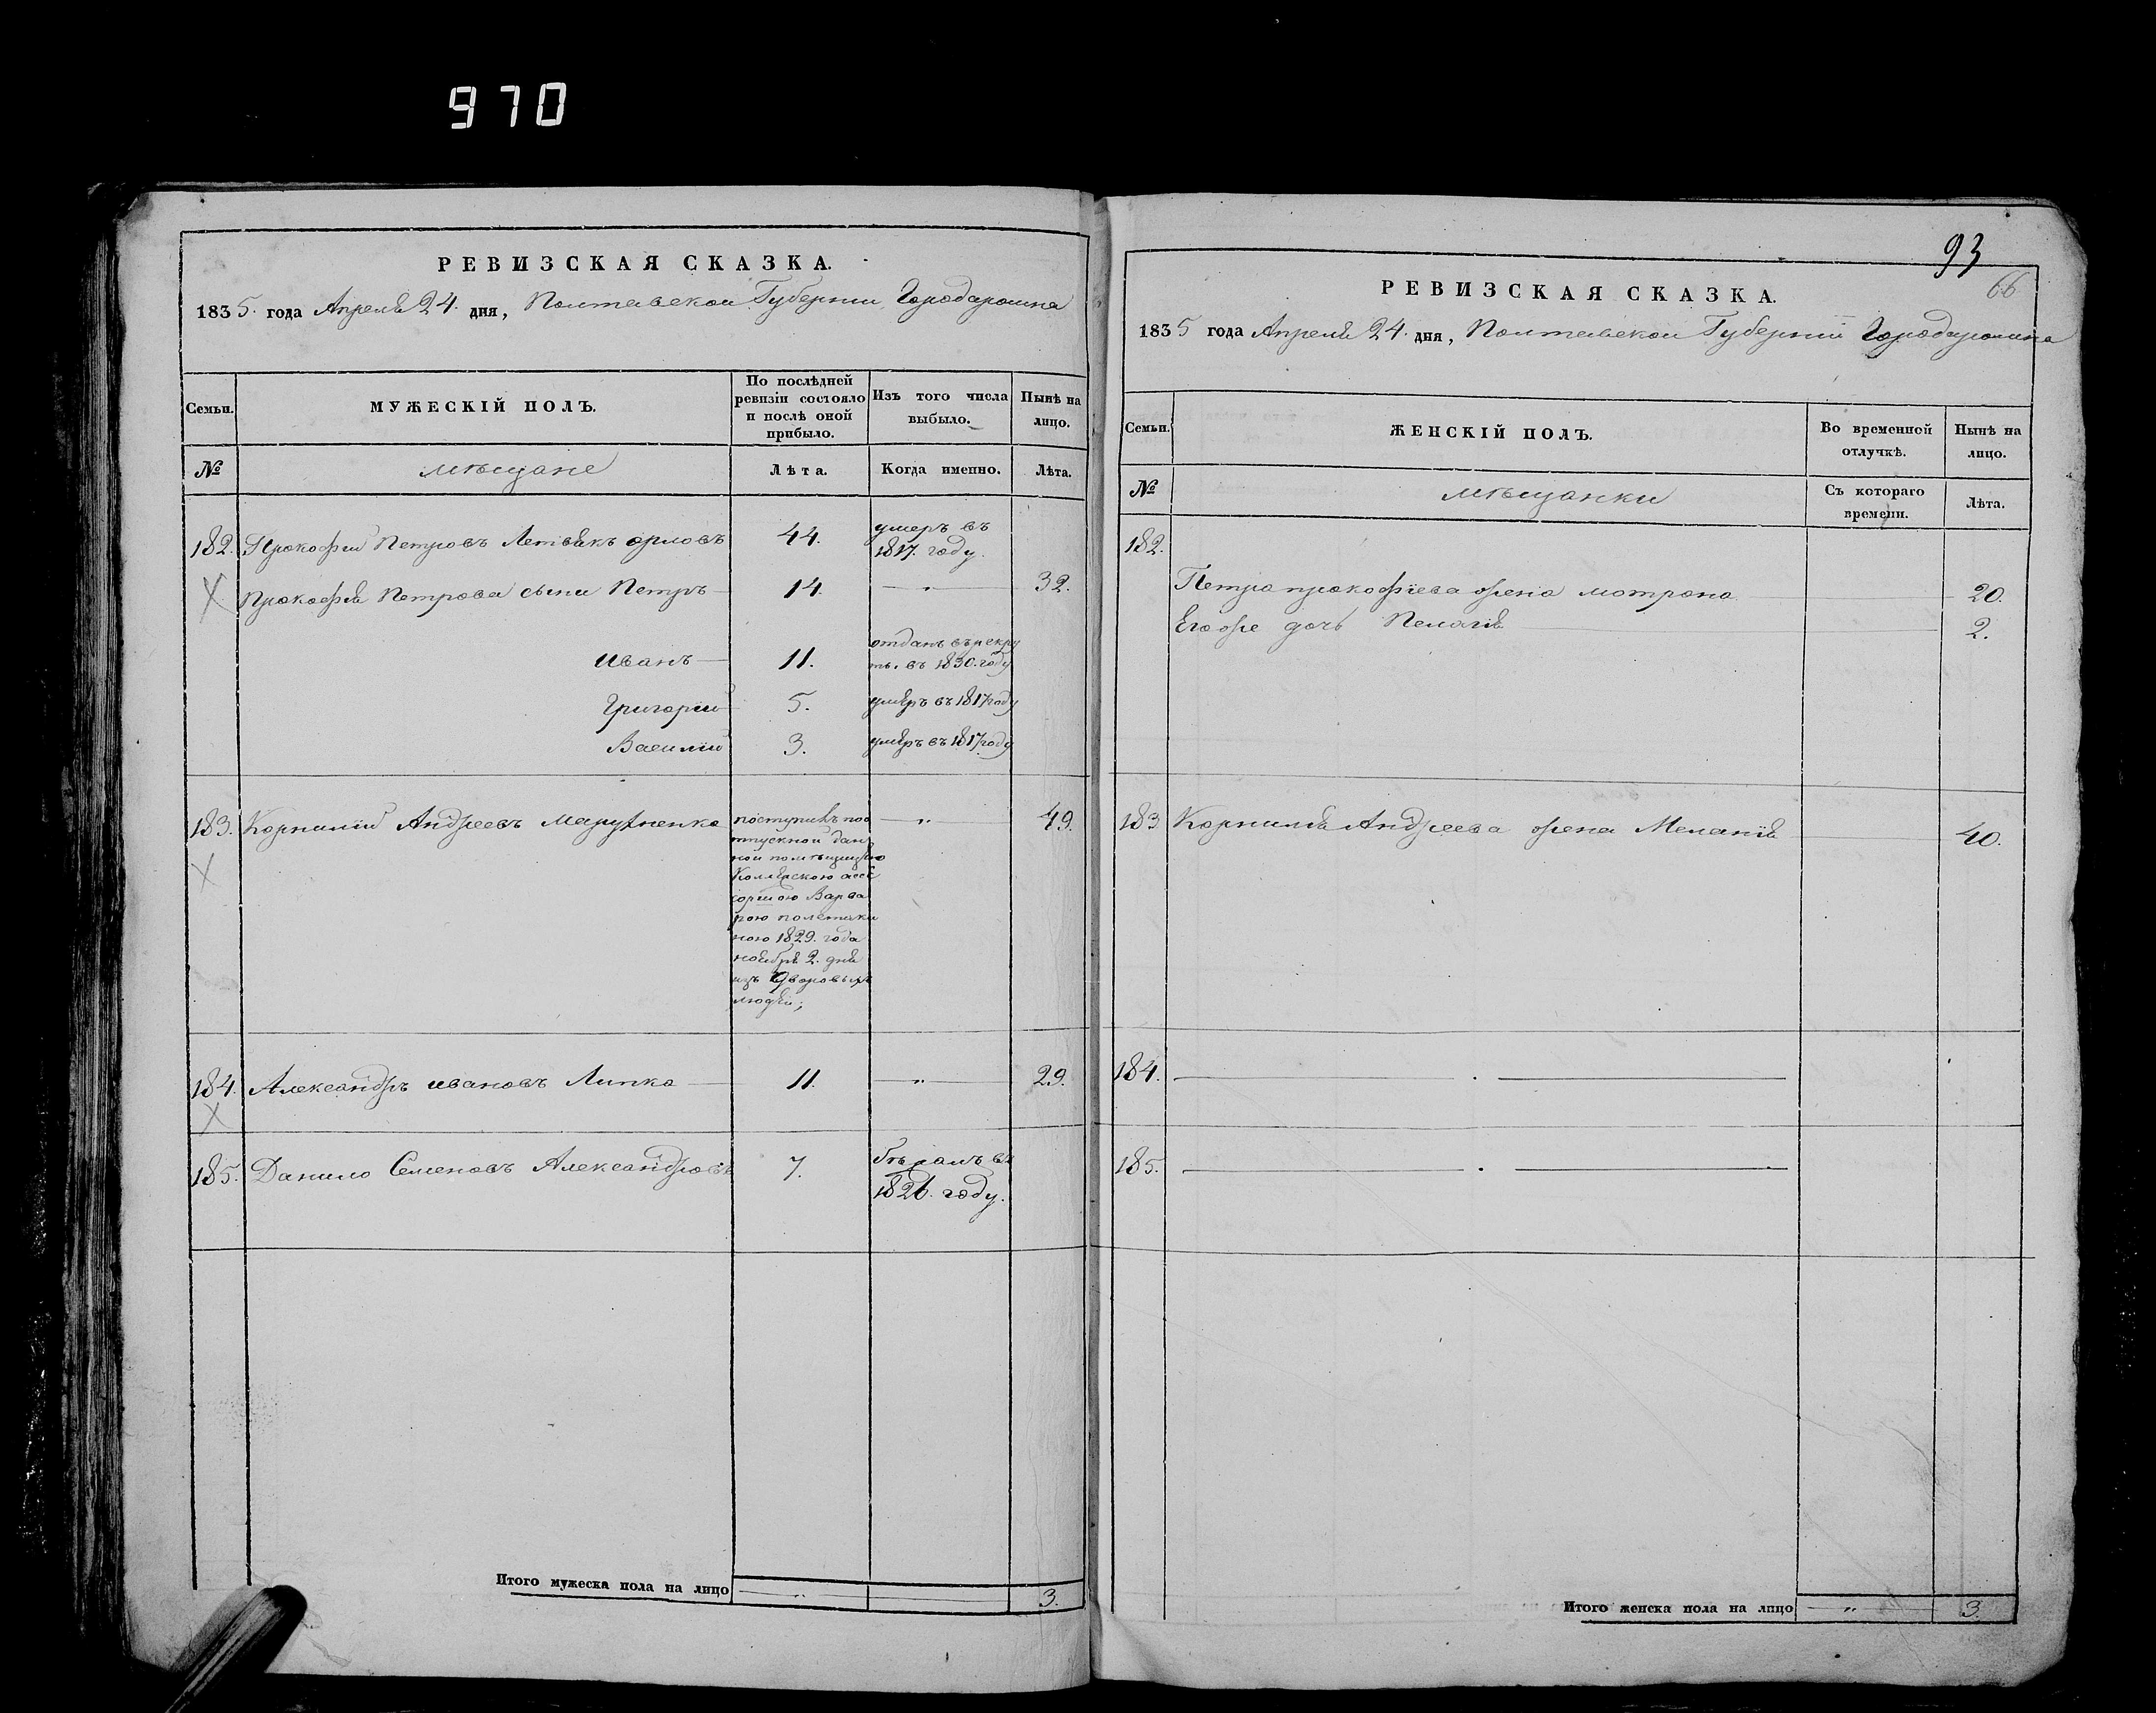 970
РЕВИЗСКАЯ СКАЗКА.
1835. года Апреля 24. дня, Полтавской Губернии, Города ромна
Семьи.
МУЖЕСКІЙ ПОЛЪ.
По послѣдней ревизіи состояло и послѣ оной прибыло.
Изъ того числа выбыло.
Нынѣ на лицо.
№
мѣщане
Лѣта.
Когда именно.
Лѣта.
182. Прокофий Петровъ Летвякъ орловъ 44. умеръ въ
1817. году.
Прокофия Петрова сыни Петръ 14. — " — 32.
иванъ 11. отданъ въ рекру
ты. въ 1830. году
Григорій 5. умеръ въ 1817 году
Василій 3. умеръ въ 1817 году
183. Корнилій Андреевъ — " — 49.
поступилъ по о
тпускной дан
ной помѣщицею
асес
соршою Варва
рою полетики
ною 1829. года
ноября 2. дня
изъ Дворовыхъ
людей;
184. Александръ ивановъ Липка 11. — " — 29.
185. Данило Семеновъ Александровъ 7. въ
1826. году.
Итого мужеска пола на лицо " 3.
93
66
РЕВИЗСКАЯ СКАЗКА.
1835 года Апреля 24. дня, Полтавской Губерніи Города ромна
Семьи.
ЖЕНСКІЙ ПОЛЪ.
Во временной отлучкѣ.
Нынѣ на лицо.
№
мѣщанки
Съ котораго времени.
Лѣта.
182.
Петра прокофіева жена мотрона 20.
Его же дочь Пелагія 2.
183 Корнилія Андреева жена Меланія 40.
184.
185.
Итого женска пола на лицо " 3.